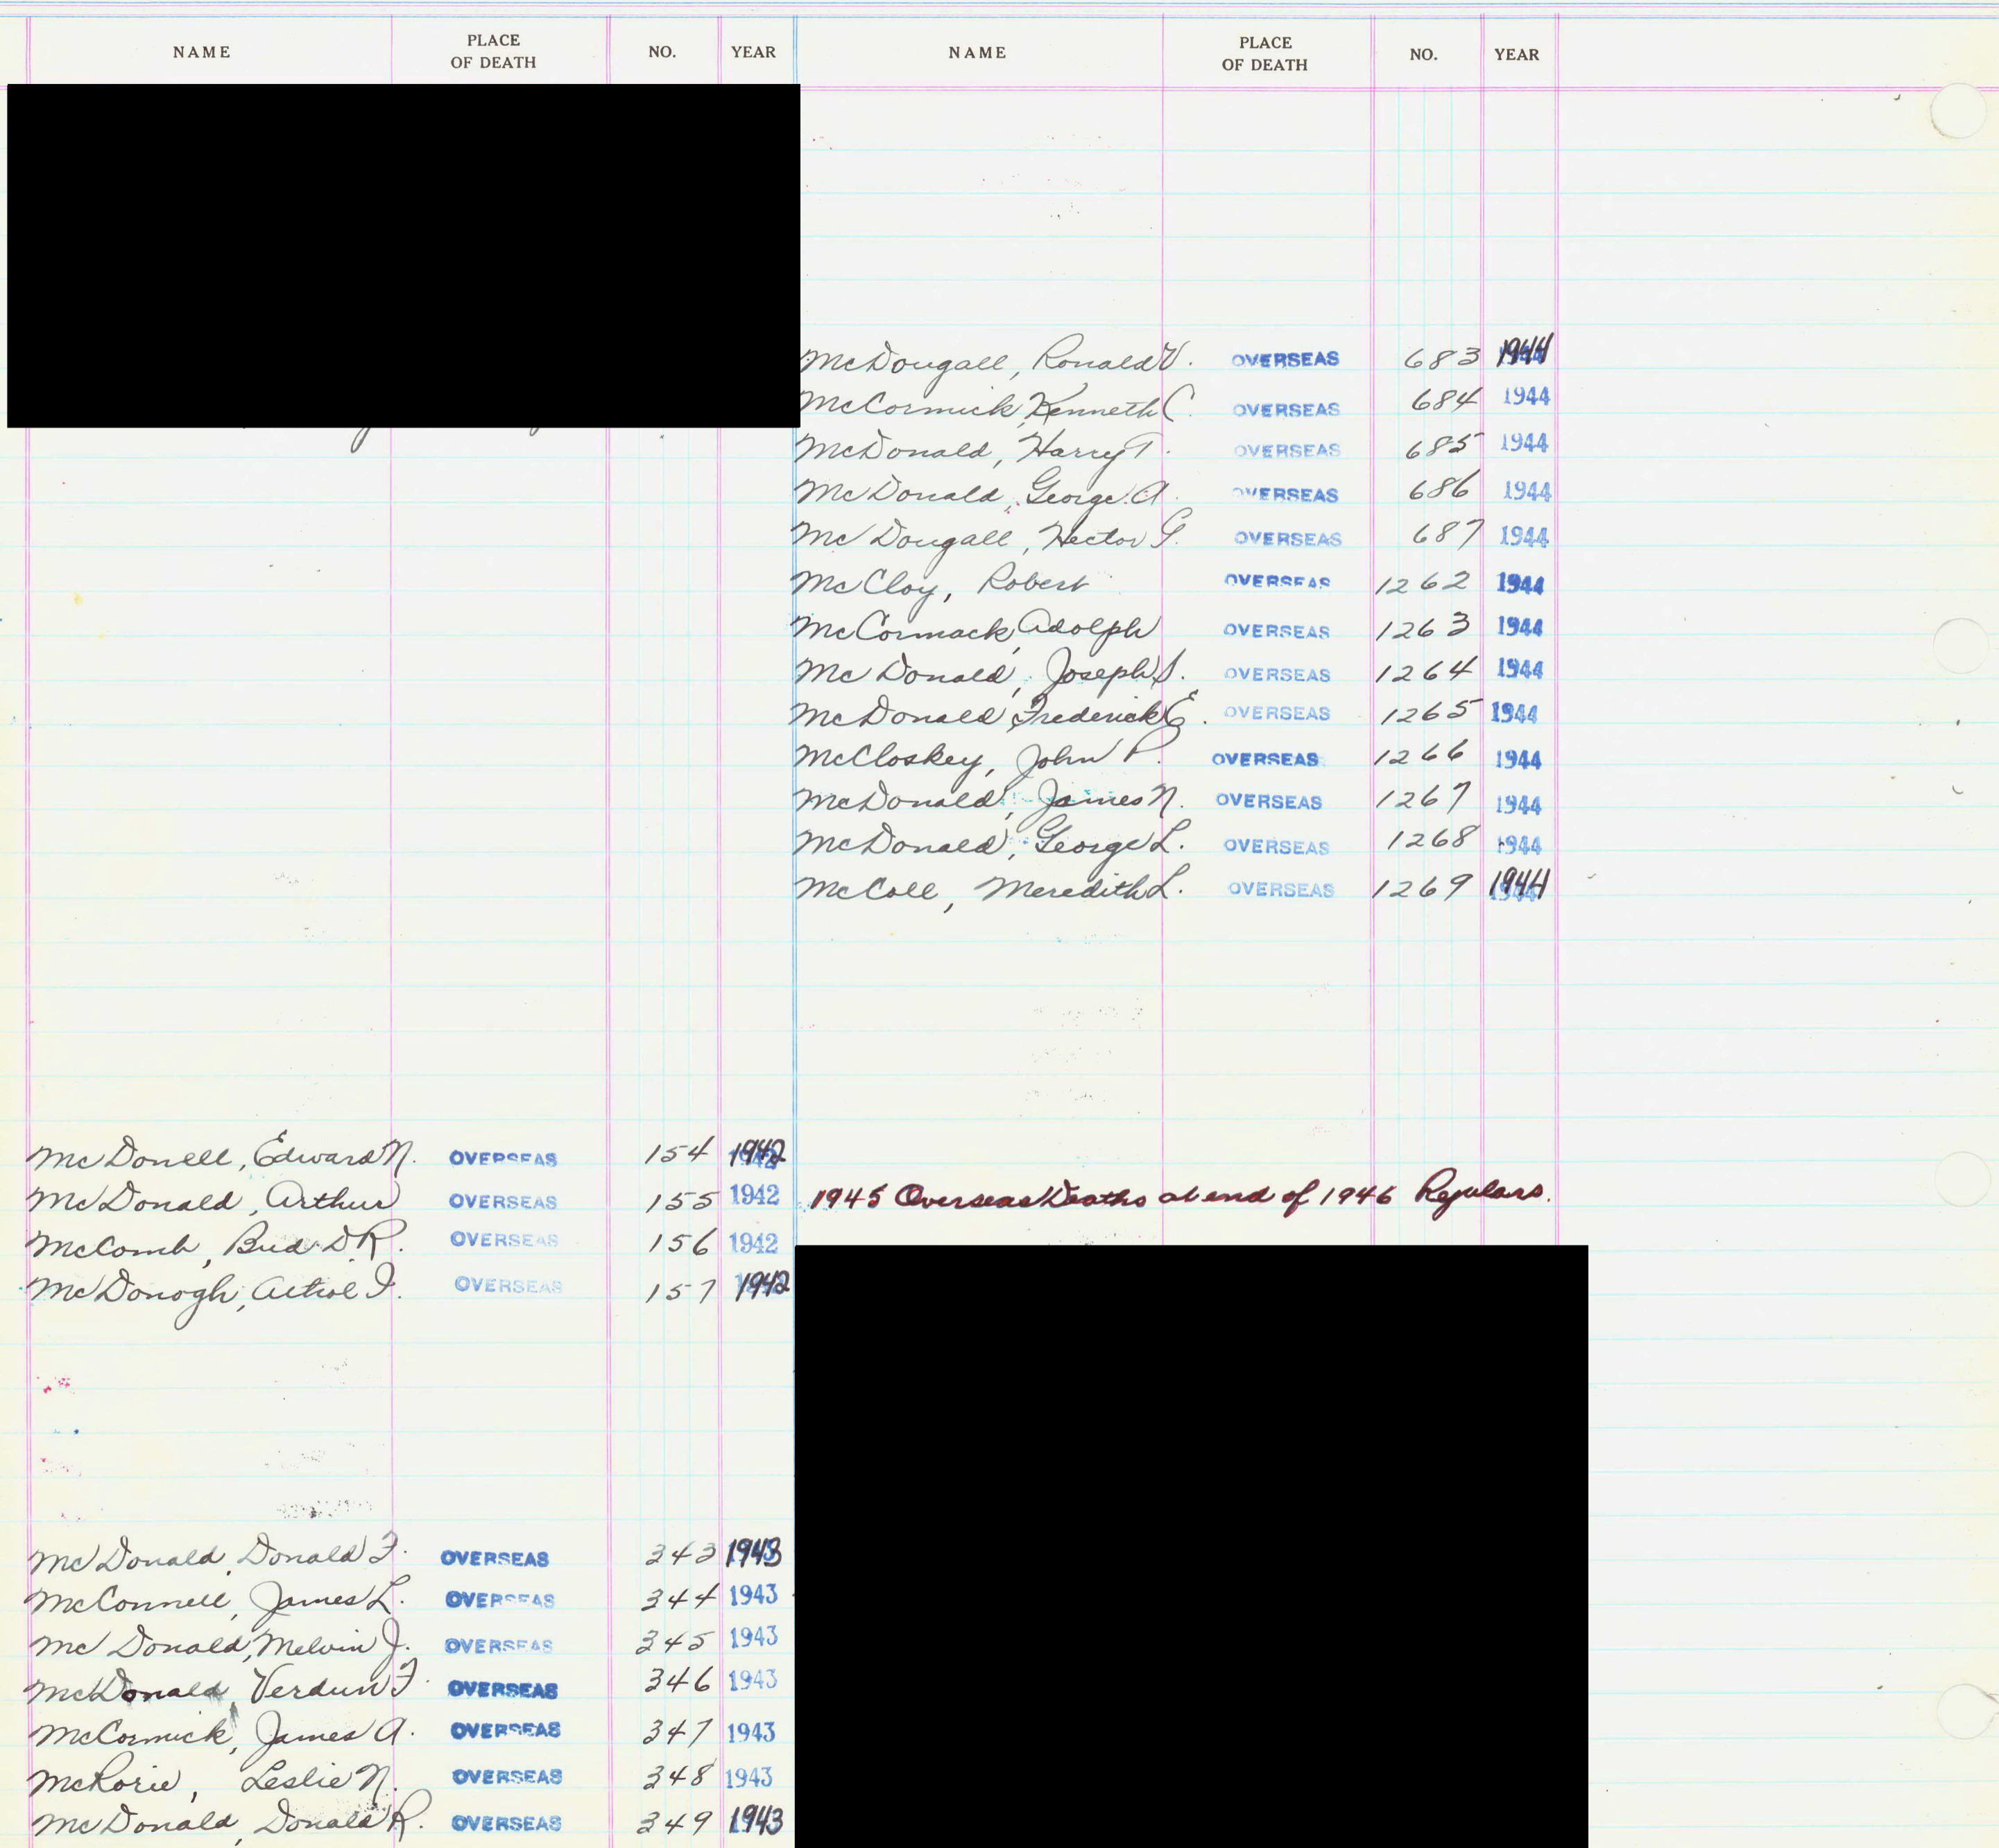 NAME PLACE OF DEATH NO. YEAR
McDonell, Edward N. OVERSEAS 154 1942
McDonald, Arthur OVERSEAS 155 1942
McComb, Bud D.R. OVERSEAS 156 1942
McDonogh, F. OVERSEAS 157 1942
McDonald, Donald F. OVERSEAS 343 1943
McConnell, James L. OVERSEAS 344 1943
McDonald, Melvin J. OVERSEAS 345 1943
McDonald, Verdun F. OVERSEAS 346 1943
McCormick, James A. OVERSEAS 347 1943
McRorie, Leslie N. OVERSEAS 348 1943
McDonald, Donald R. OVERSEAS 349 1943
NAME PLACE OF DEATH NO. YEAR
McDougall, Ronald V. OVERSEAS 683 1944
McCormick, Kenneth C. OVERSEAS 684 1944
McDonald, Harry T. OVERSEAS 685 1944
McDonald, George A. OVERSEAS 686 1944
McDougall, Hector G. OVERSEAS 687 1944
McCloy, Robert OVERSEAS 1262 1944
McCormack, Adolph OVERSEAS 1263 1944
McDonald, Joseph S. OVERSEAS 1264 1944
McDonald, Frederick E. OVERSEAS 1265 1944
McCloskey, John P. OVERSEAS 1266 1944
McDonald, James N. OVERSEAS 1267 1944
McDonald, George L. OVERSEAS 1268 1944
McColl, Meredith L. OVERSEAS 1269 1944
1945 Overseas Deaths at end of 1946 Regulars.